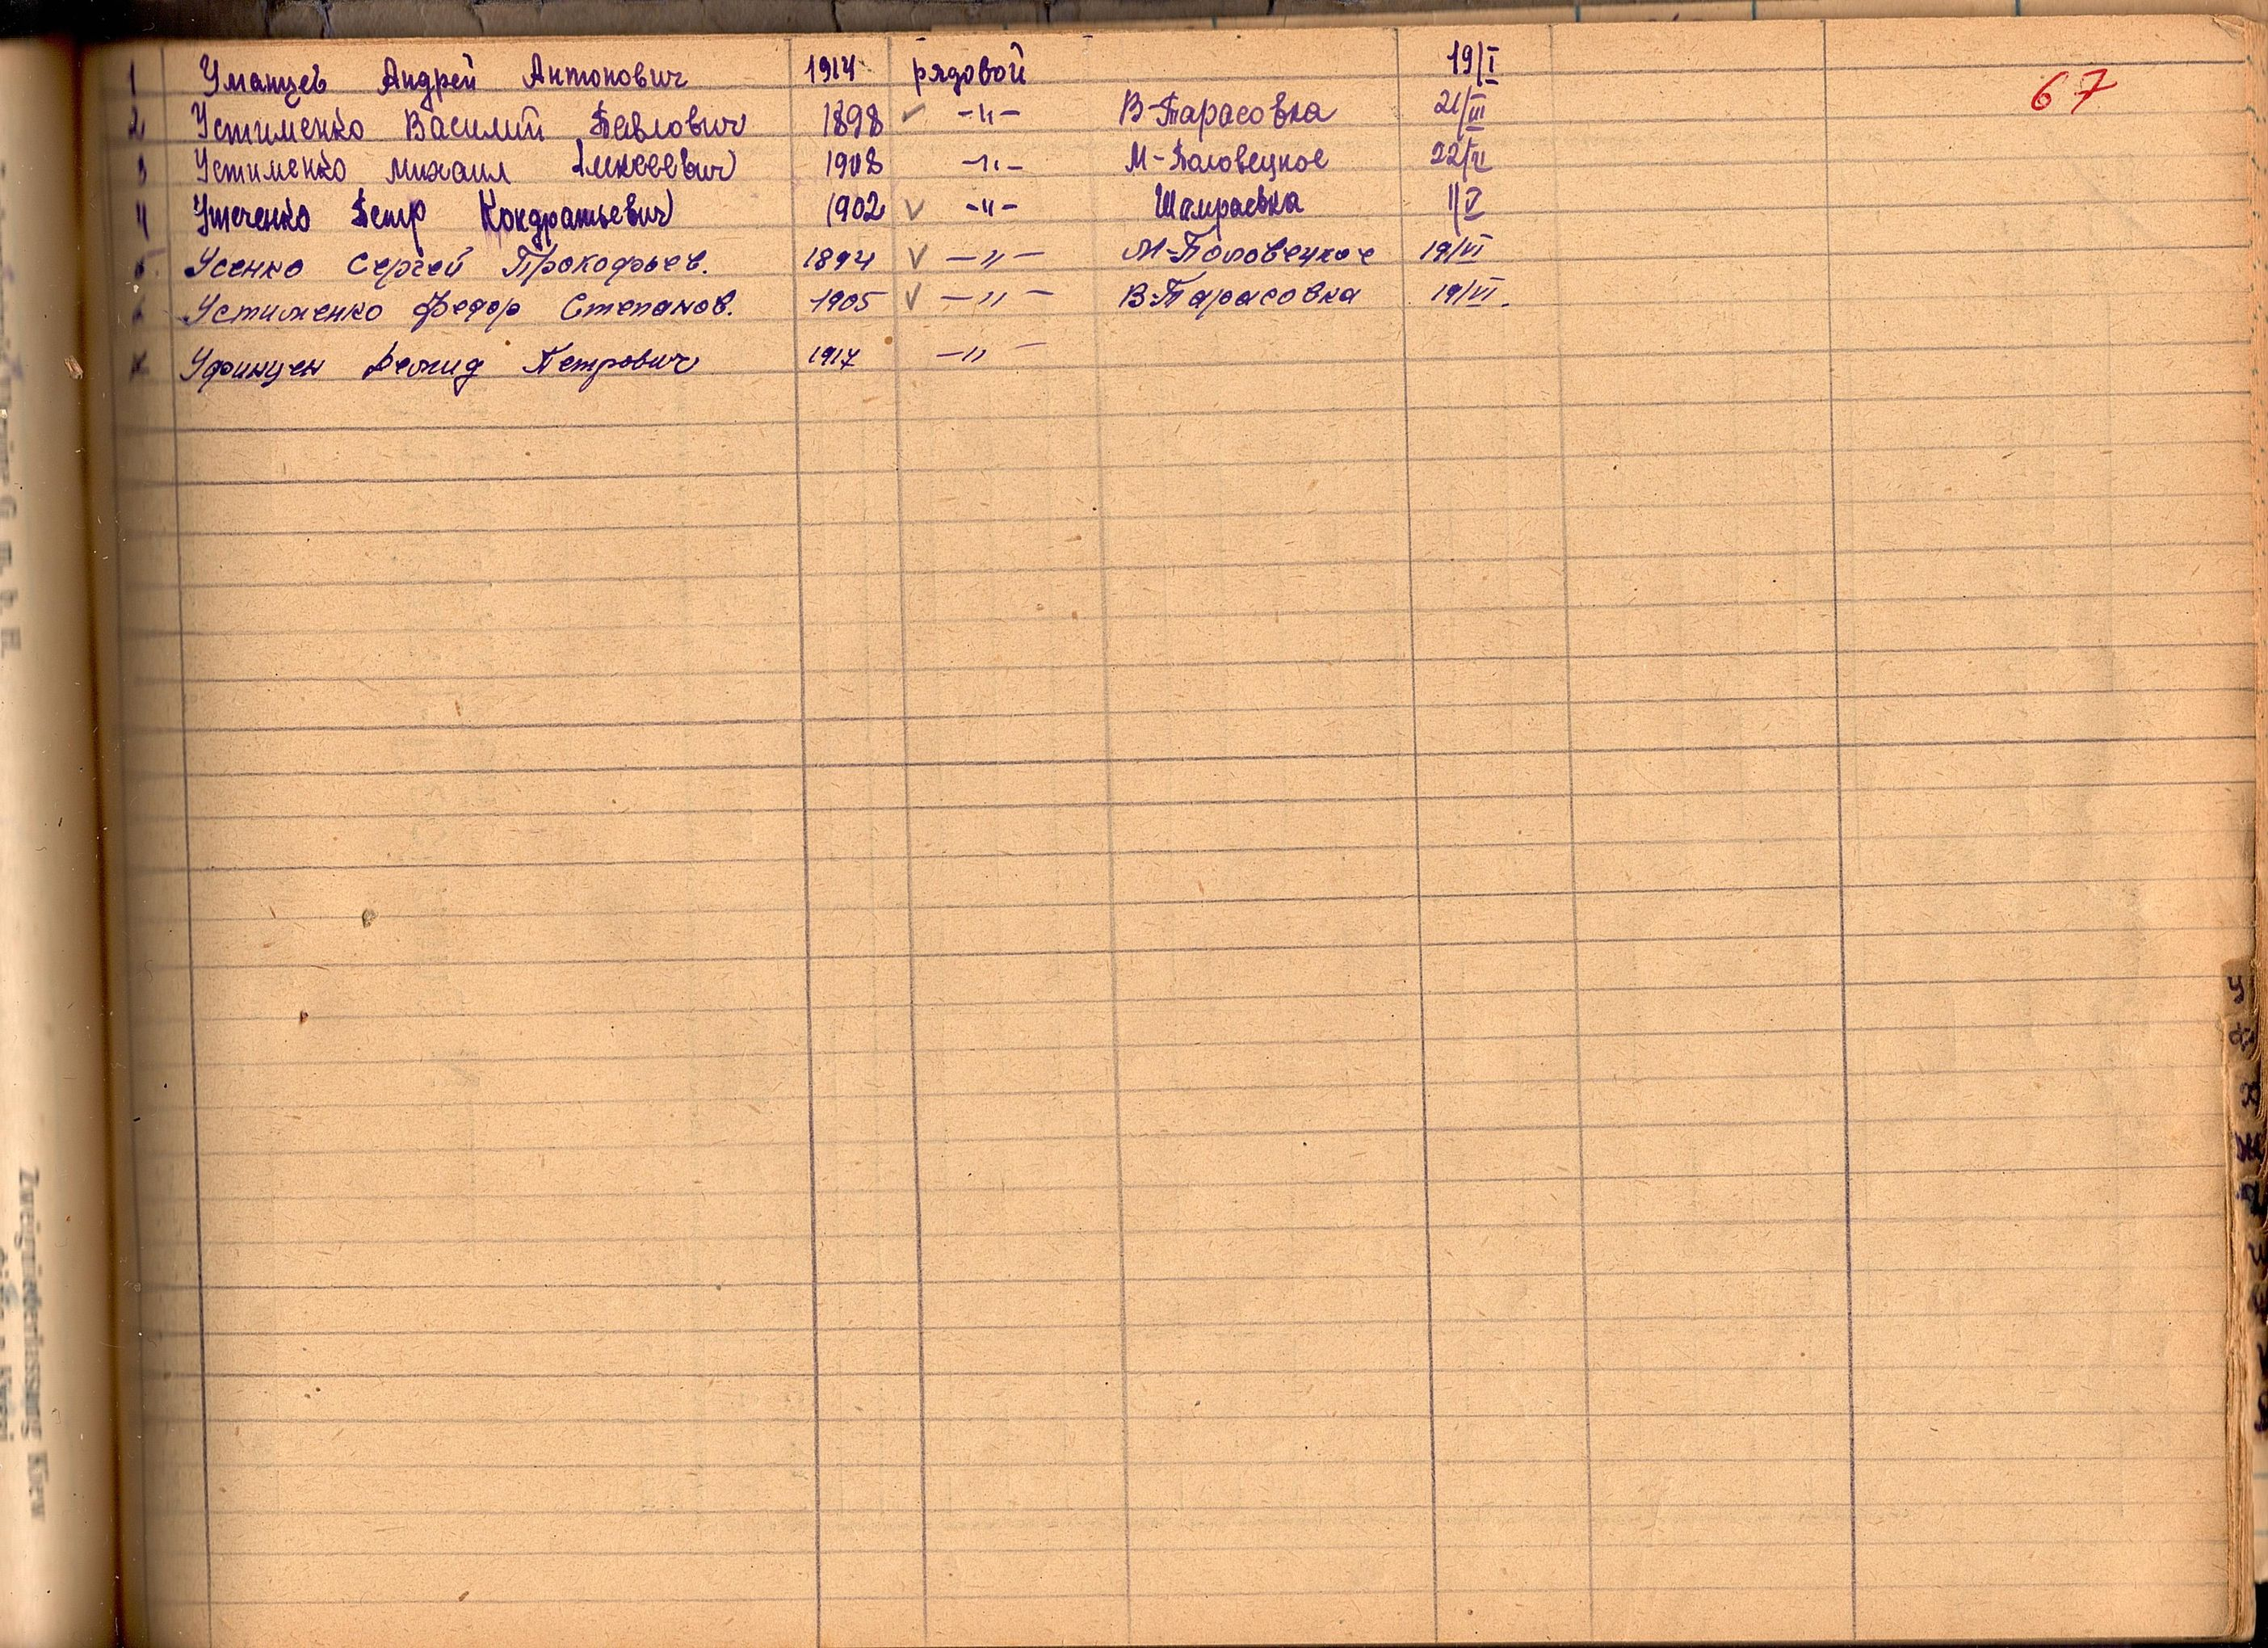 67
1 Уманцев Андрей Антонович 1914 рядовой 19/I
2 Устименко Василий Павлович 1898 ✓ -"- В-Тарасовка 21/III
3 Устименко Михаил Алексеевич 1908 -"- М-Половецкое
4 Утеченко Петр Кондратьевич 1902 ✓ -"- Шамраевка 1/V
5. Усенко Сергей Прокофьев. 1894 ✓ -"- М-Половецкое 19/VI
6 Устименко Федор Степанов. 1905 ✓ -"- В-Тарасовка 19/VI.
Уфинцен Леонид Петрович 1917 -"-
У
Zweigniederlassung Kiew